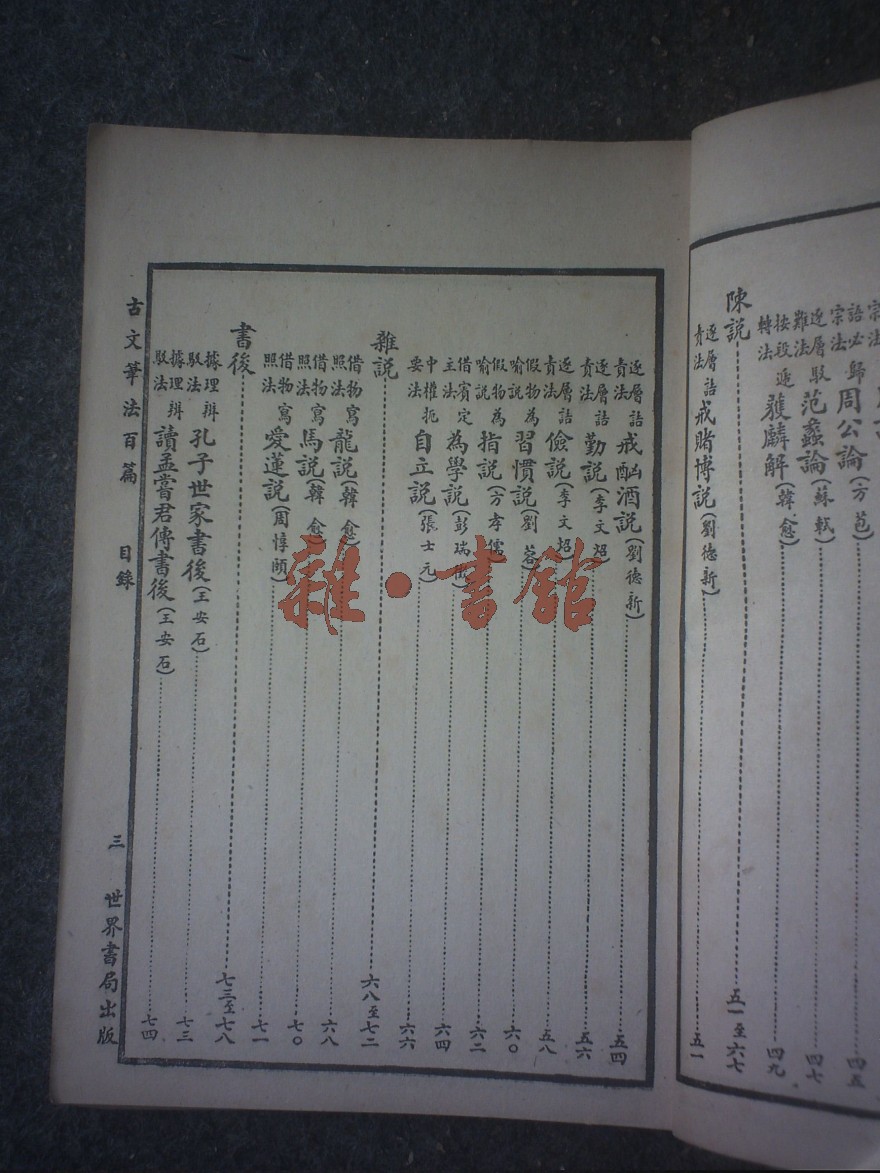 宗法
語必歸宗法 周公論(方苞) 四五
逐層駁難法 范蠡論(蘇軾) 四七
按段遞轉法 獲麟解(韓愈) 四九
陳説 五一至六七
逐層詰責法 戒賭博説(劉德新) 五一
逐層詰責法 戒酗酒説(劉德新) 五四
逐層詰責法 勤説(李文炤) 五六
逐層詰責法 儉説(李文炤) 五八
假物為喻説 習慣説(劉蓉) 六〇
假物為喻説 指説(方孝儒) 六二
借賓定主法 為學説(彭瑞) 六四
中權扼要法 自立説(張士元) 六六
雜説 六八至七二
借物寫照法 龍説(韓愈) 六八
借物寫照法 馬説(韓愈) 七〇
借物寫照法 愛蓮説(周惇頤) 七一
書後 七三至七八
據理辨駁法 孔子世家書後(王安石) 七三
據理辨駁法 讀孟嘗君傳書後(王安石) 七四
古文筆法百篇 目錄 三 世界書局出版
雜·書館